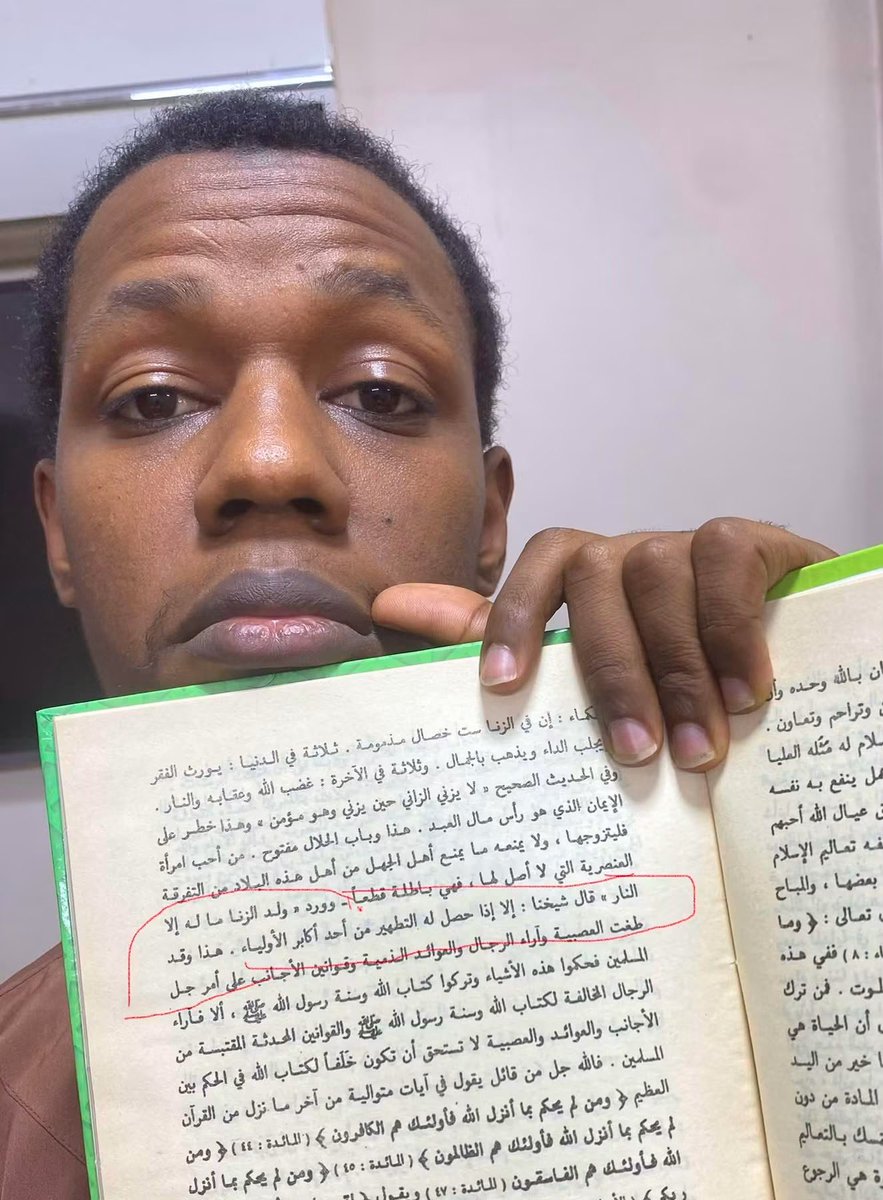 إن في الزنا ست خصال مذمومة . ثلاثة في الدنيا : يورث الفقر
يجلب الداء ويذهب بالجمال . وثلاثة في الآخرة : غضب الله وعقابه والنار .
وفي الحديث الصحيح « لا يزني الزاني حين يزني وهو مؤمن » وهذا خطر على
الإيمان الذي هو رأس مال العبد . هذا وباب الحلال مفتوح . من أحب امرأة
فليتزوجها ، ولا يمنعه ما يمنع أهل الجهل من أهل هذه البلاد من التفرقة
العنصرية التي لا أصل لها ، فهي باطلة قطعاً . وورد « ولد الزنا ما له إلا
النار » قال شيخنا : إلا إذا حصل له التطهير من أحد أكابر الأولياء . هذا وقد
طغت العصبية وآراء الرجال والعوائد الذميمة وقوانين الأجانب على أمر جل
المسلمين فحكموا هذه الأشياء وتركوا كتاب الله وسنة رسول الله ﷺ ، ألا فآراء
الرجال المخالفة لكتاب الله وسنة رسول الله ﷺ والقوانين المحدثة المقتبسة من
الأجانب والعوائد والعصبية لا تستحق أن تكون خلفاً لكتاب الله في الحكم بين
المسلمين . فالله جل من قائل يقول في آيات متوالية من آخر ما نزل من القرآن
العظيم ﴿ ومن لم يحكم بما أنزل الله فأولئك هم الكافرون ﴾ (المائدة : ٤٤) ﴿ ومن
لم يحكم بما أنزل الله فأولئك هم الظالمون ﴾ (المائدة : ٤٥) ﴿ ومن لم يحكم بما أنزل
الله فأولئك هم الفاسقون ﴾ (المائدة : ٤٧) ويقول ﴿
بالله وحده
وتراحم وتعاون .
له مثله العليا
ينفع به نفسه
عيال الله أحبهم
تعاليم الإسلام
بعضها ، والمباح
تعالى : ﴿ وما
: ٨) ففي هذه
فمن ترك
أن الحياة هي
خير من اليد
المادة من دون
بالتعاليم
هي الرجوع